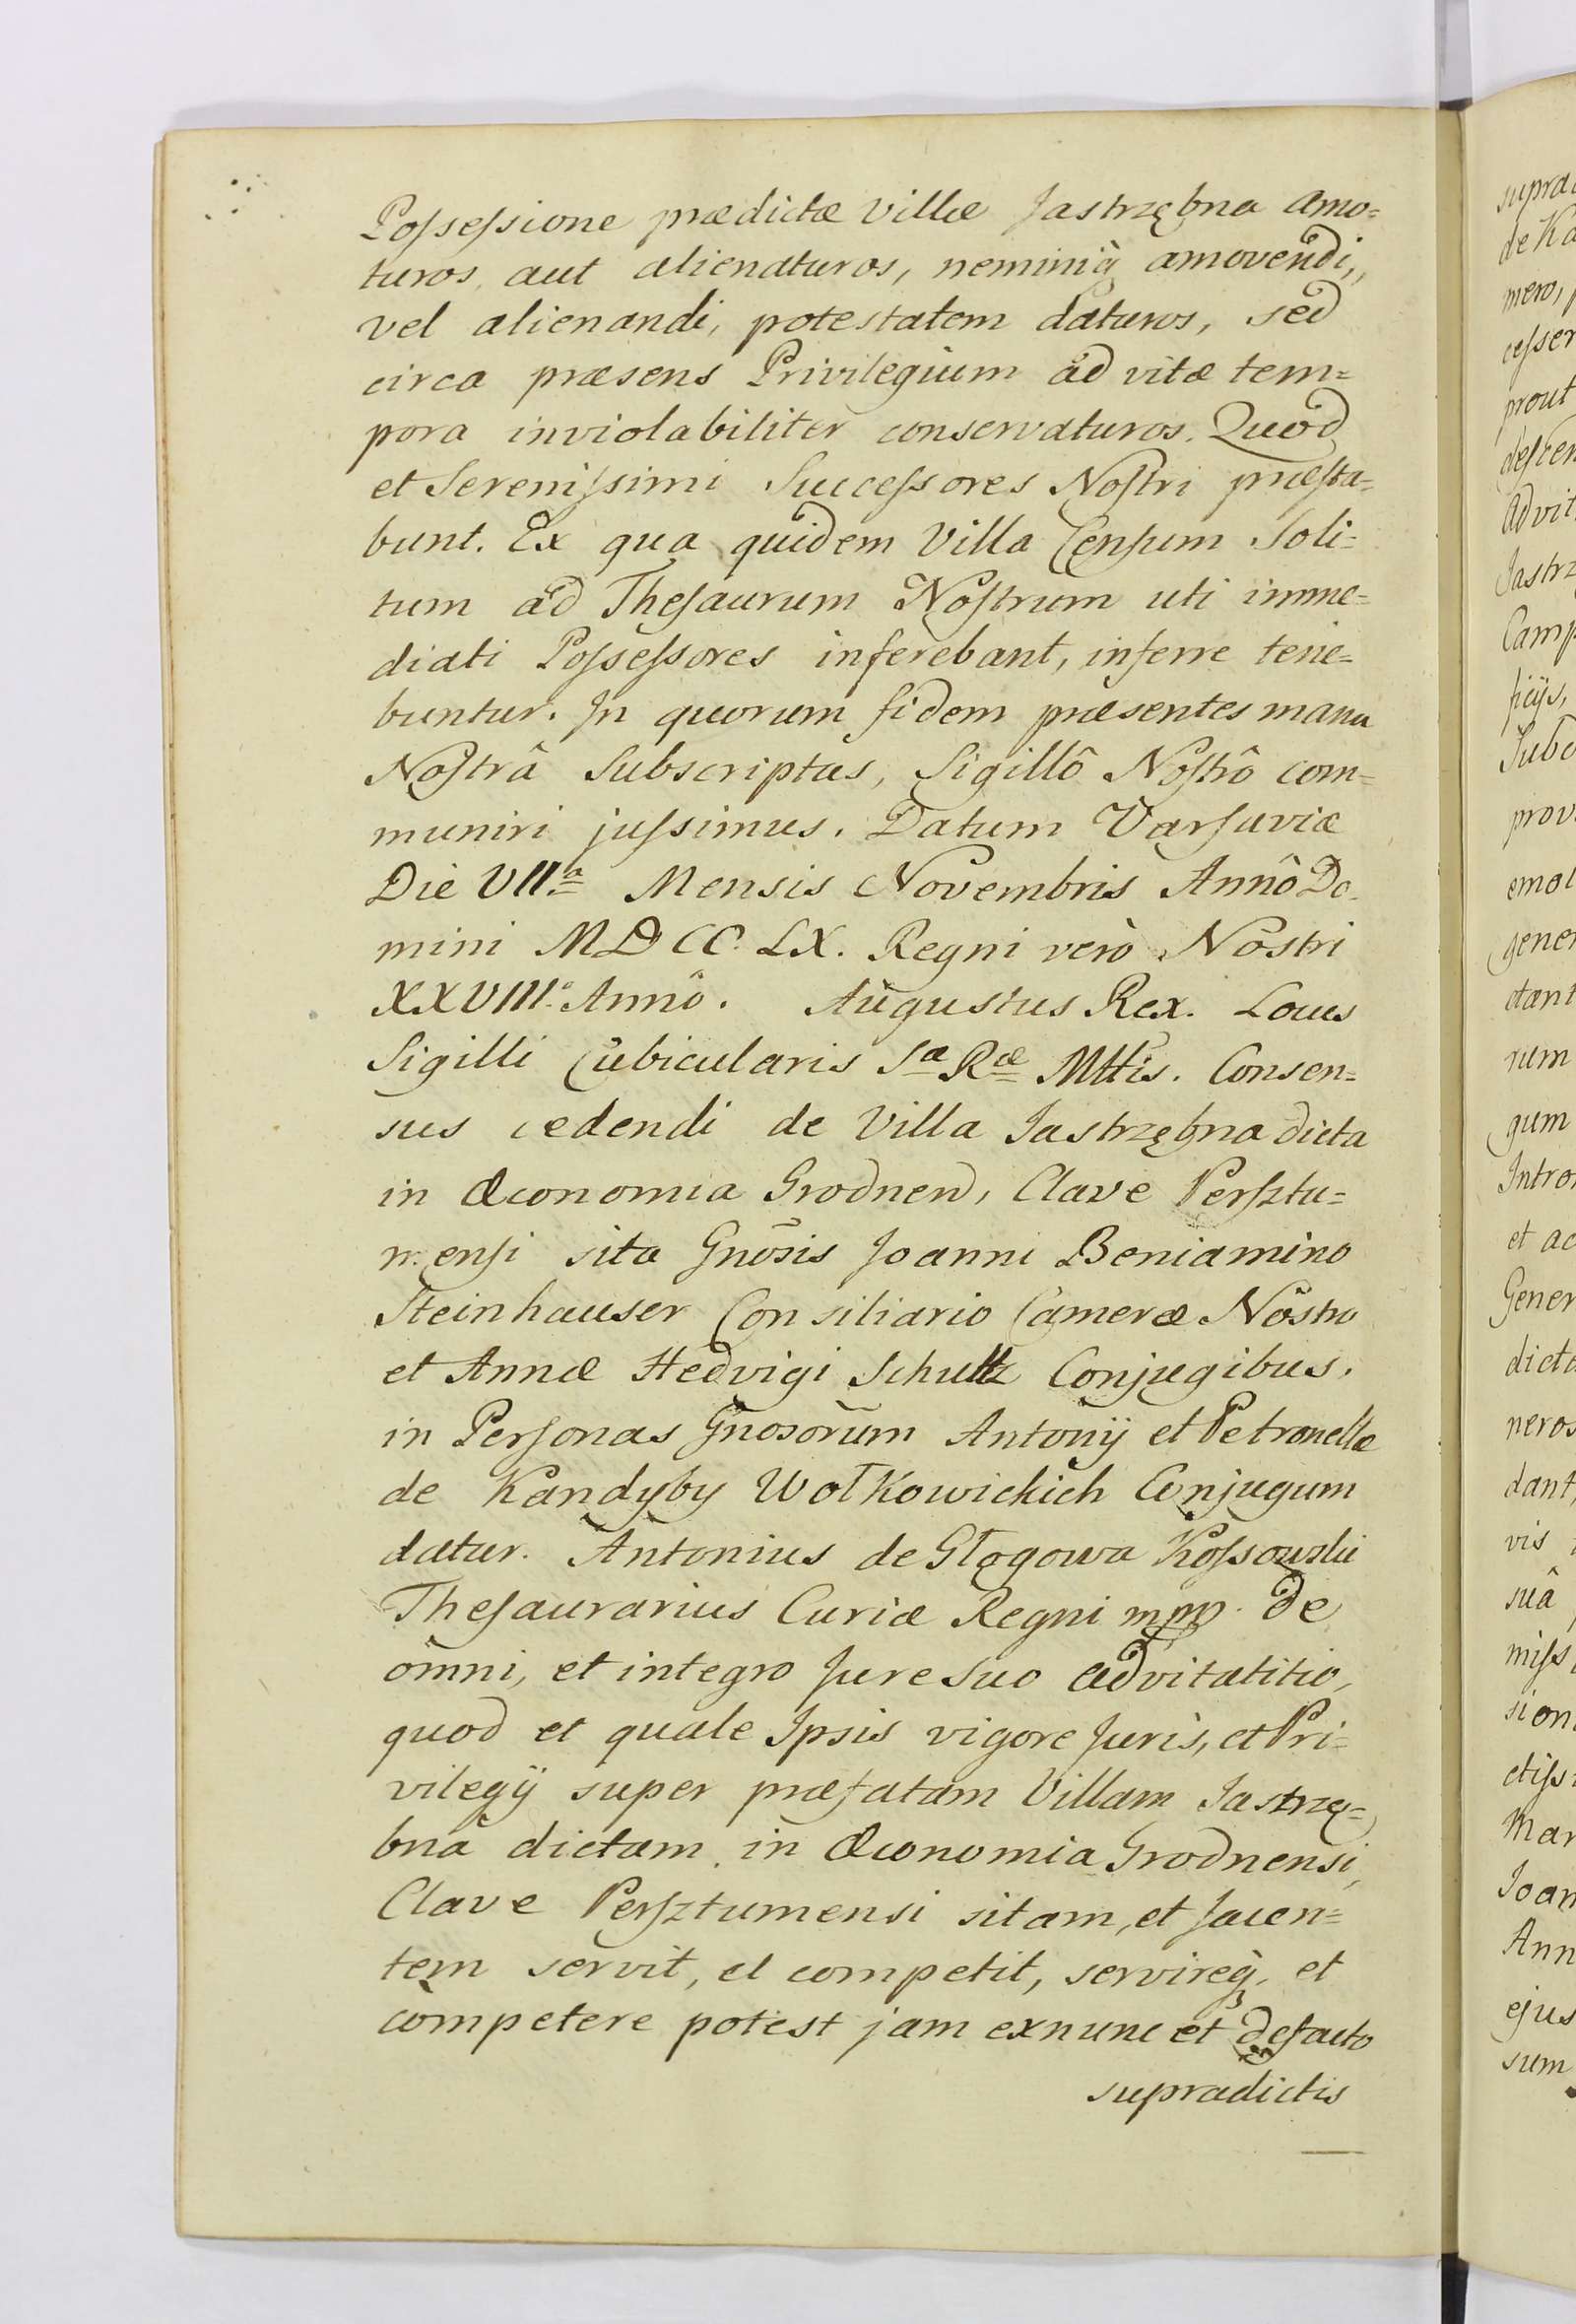 Possessione prædictæ Villæ Jastrzębna amo=
turos, aut alienaturos, neminiq; amovendi,
vel alienandi, potestatem daturos, sed
circa præsens Privilegium ad vitæ tem=
pora inviolabiliter conservaturos. Quod
et Serenissimi Successores Nostri præsta=
bunt. Ex qua quidem Villa Censum Soli=
tum ad Thesaurum Nostrum uti imme=
diati Possessores inferebant, inferre tene=
buntur. In quorum fidem præsentes manu
Nostrâ Subscriptas, Sigillô Nostrô com=
muniri jussimus. Datum Varsaviæ
Die VIIa Mensis Novembris Annô Do=
mini MDCC.LX. Regni verò Nostri
XXVIIIo Annô. Augustus Rex. Locus
Sigilli Cubicularis Sæ Ræ Mttis. Consen=
sus cedendi de Villa Jastrzębna dicta
in Œconomia Grodnen, Clave Persztu=
mensi sita Gnõsis Joanni Beniamino
Steinhauser Consiliario Cameræ Nostro
et Annæ Hedvigi Schultz Conjugibus,
in Personas Gnosõrum Antonij et Petronellæ
de Kandyby Wołkowickich Conjugum
datur. Antonius de Głogowa Kossowski
Thesaurarius Curiæ Regni mpp. de
omni, et integro Jure Suo advitalitio,
quod et quale Ipsis vigore Juris, et Pri=
vilegij super præfatam Villam Jastrzę=
bna dictam, in Œconomia Grodnensi,
Clave Persztumensi sitam, et Jacen=
tem servit, et competit, servireq; et
competere potest jam exnunc et defacto
supradictis